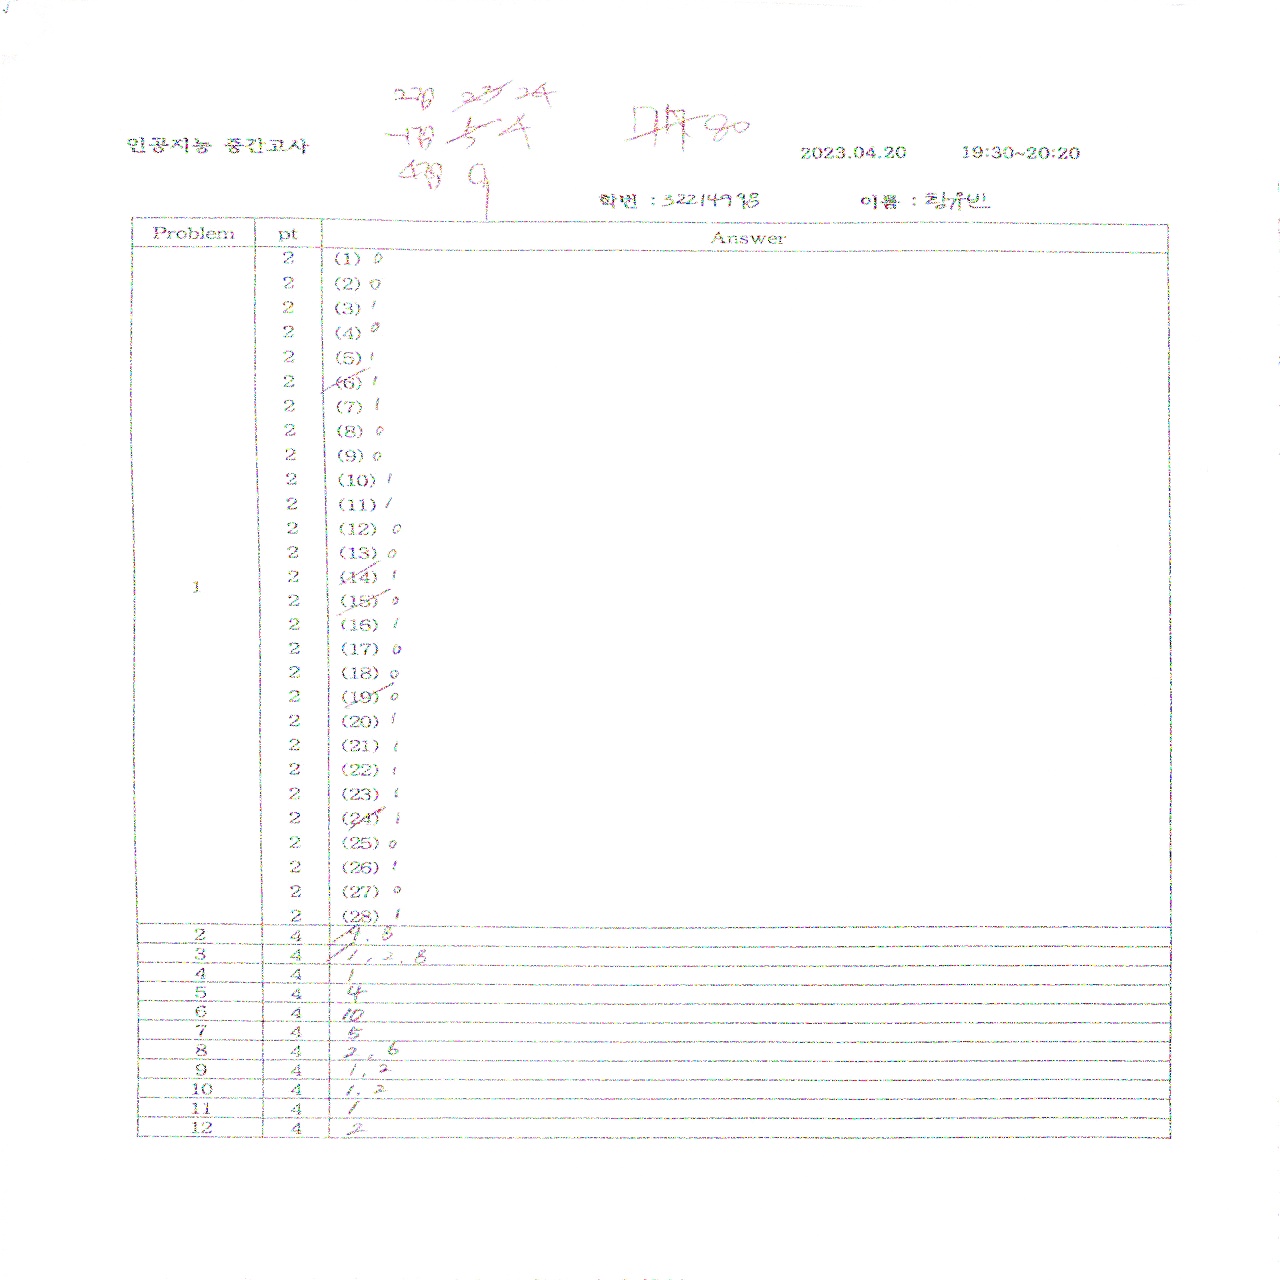 2점 23 24
인공지능 중간고사 -1점 5 4 80
2023.04.20 19:30~20:20
4점 9
학번 : 32214998 이름 :
Problem pt Answer
2 (1) 0
2 (2) 0
2 (3) 1
2 (4) 0
2 (5) 1
2 (6) 1
2 (7) 1
2 (8) 0
2 (9) 0
2 (10) 1
2 (11) 1
2 (12) 0
2 (13) 0
1 2 (14) 1
2 (15) 0
2 (16) 1
2 (17) 0
2 (18) 0
2 (19) 0
2 (20) 1
2 (21) 1
2 (22) 1
2 (23) 1
2 (24) 1
2 (25) 0
2 (26) 1
2 (27) 0
2 (28) 1
2 4 9, 5
3 4 1, 2, 8
4 4 1
5 4 4
6 4 10
7 4 5
8 4 2, 6
9 4 1, 2
10 4 1, 2
11 4 1
12 4 2